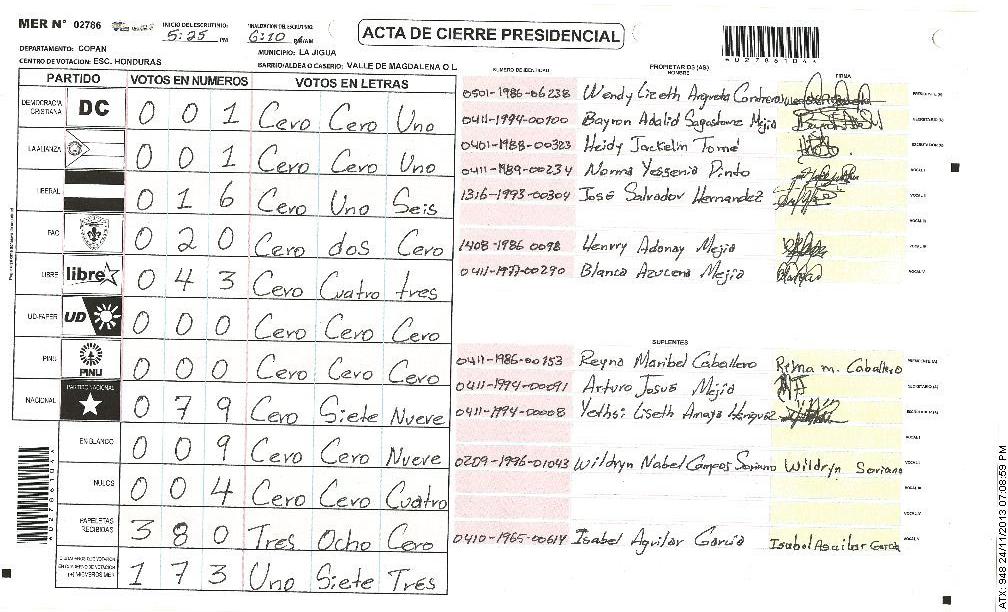 MER Nº 02786
INICIO DEL ESCRUTINIO: 5:25 PM
FINALIZACION DEL ESCRUTINIO: 6:10
ACTA DE CIERRE PRESIDENCIAL
AU2786104A
DEPARTAMENTO: COPAN
MUNICIPIO: LA JIGUA
CENTRO DE VOTACION: ESC. HONDURAS
BARRIO/ALDEA O CASERIO: VALLE DE MAGDALENA O L
PARTIDO VOTOS EN NUMEROS VOTOS EN LETRAS
DEMOCRACIA CRISTIANA DC 0 0 1 Cero Cero Uno
LA ALIANZA 0 0 1 Cero Cero Uno
LIBERAL 0 1 6 Cero Uno Seis
PAC 0 2 0 Cero dos Cero
LIBRE libre 0 4 3 Cero Cuatro tres
UD-FAPER UD 0 0 0 Cero Cero Cero
PINU PINU 0 0 0 Cero Cero Cero
NACIONAL PARTIDO NACIONAL 0 7 9 Cero Siete Nueve
EN BLANCO 0 0 9 Cero Cero Nueve
NULOS 0 0 4 Cero Cero Cuatro
PAPELETAS RECIBIDAS 3 8 0 Tres Ocho Cero
(+) MIEMBROS MER 1 7 3 Uno Siete Tres
AU2786104A
NUMERO DE IDENTIDAD PROPIETARIOS (AS) NOMBRE FIRMA
0501-1986-06238 Wendy Lizeth Argueta Contreras
0411-1994-00100 Bayron Adalid Sagastume Mejia
0401-1988-00323 Heidy Jackelin Tomé
0411-1989-00234 Norma Yessenia Pinto
1316-1993-00304 José Salvador Hernandez
1408-1986 0098 Henrry Adonay Mejia
0411-1977-00290 Blanca Azucena Mejia
SUPLENTES
0411-1986-00153 Reyna Maribel Caballero Reina m. Caballero
0411-1994-00091 Arturo Josue Mejia
0411-1994-00008 Liseth Amaya
0209-1996-01043 Wildryn Nabel Campos Soriano Wildryn Soriano
0410-1965-00614 Isabel Aguilar Garcia Isabel Aguilar Garcia
ATX: 948 24/11/2013 07:08:59 PM